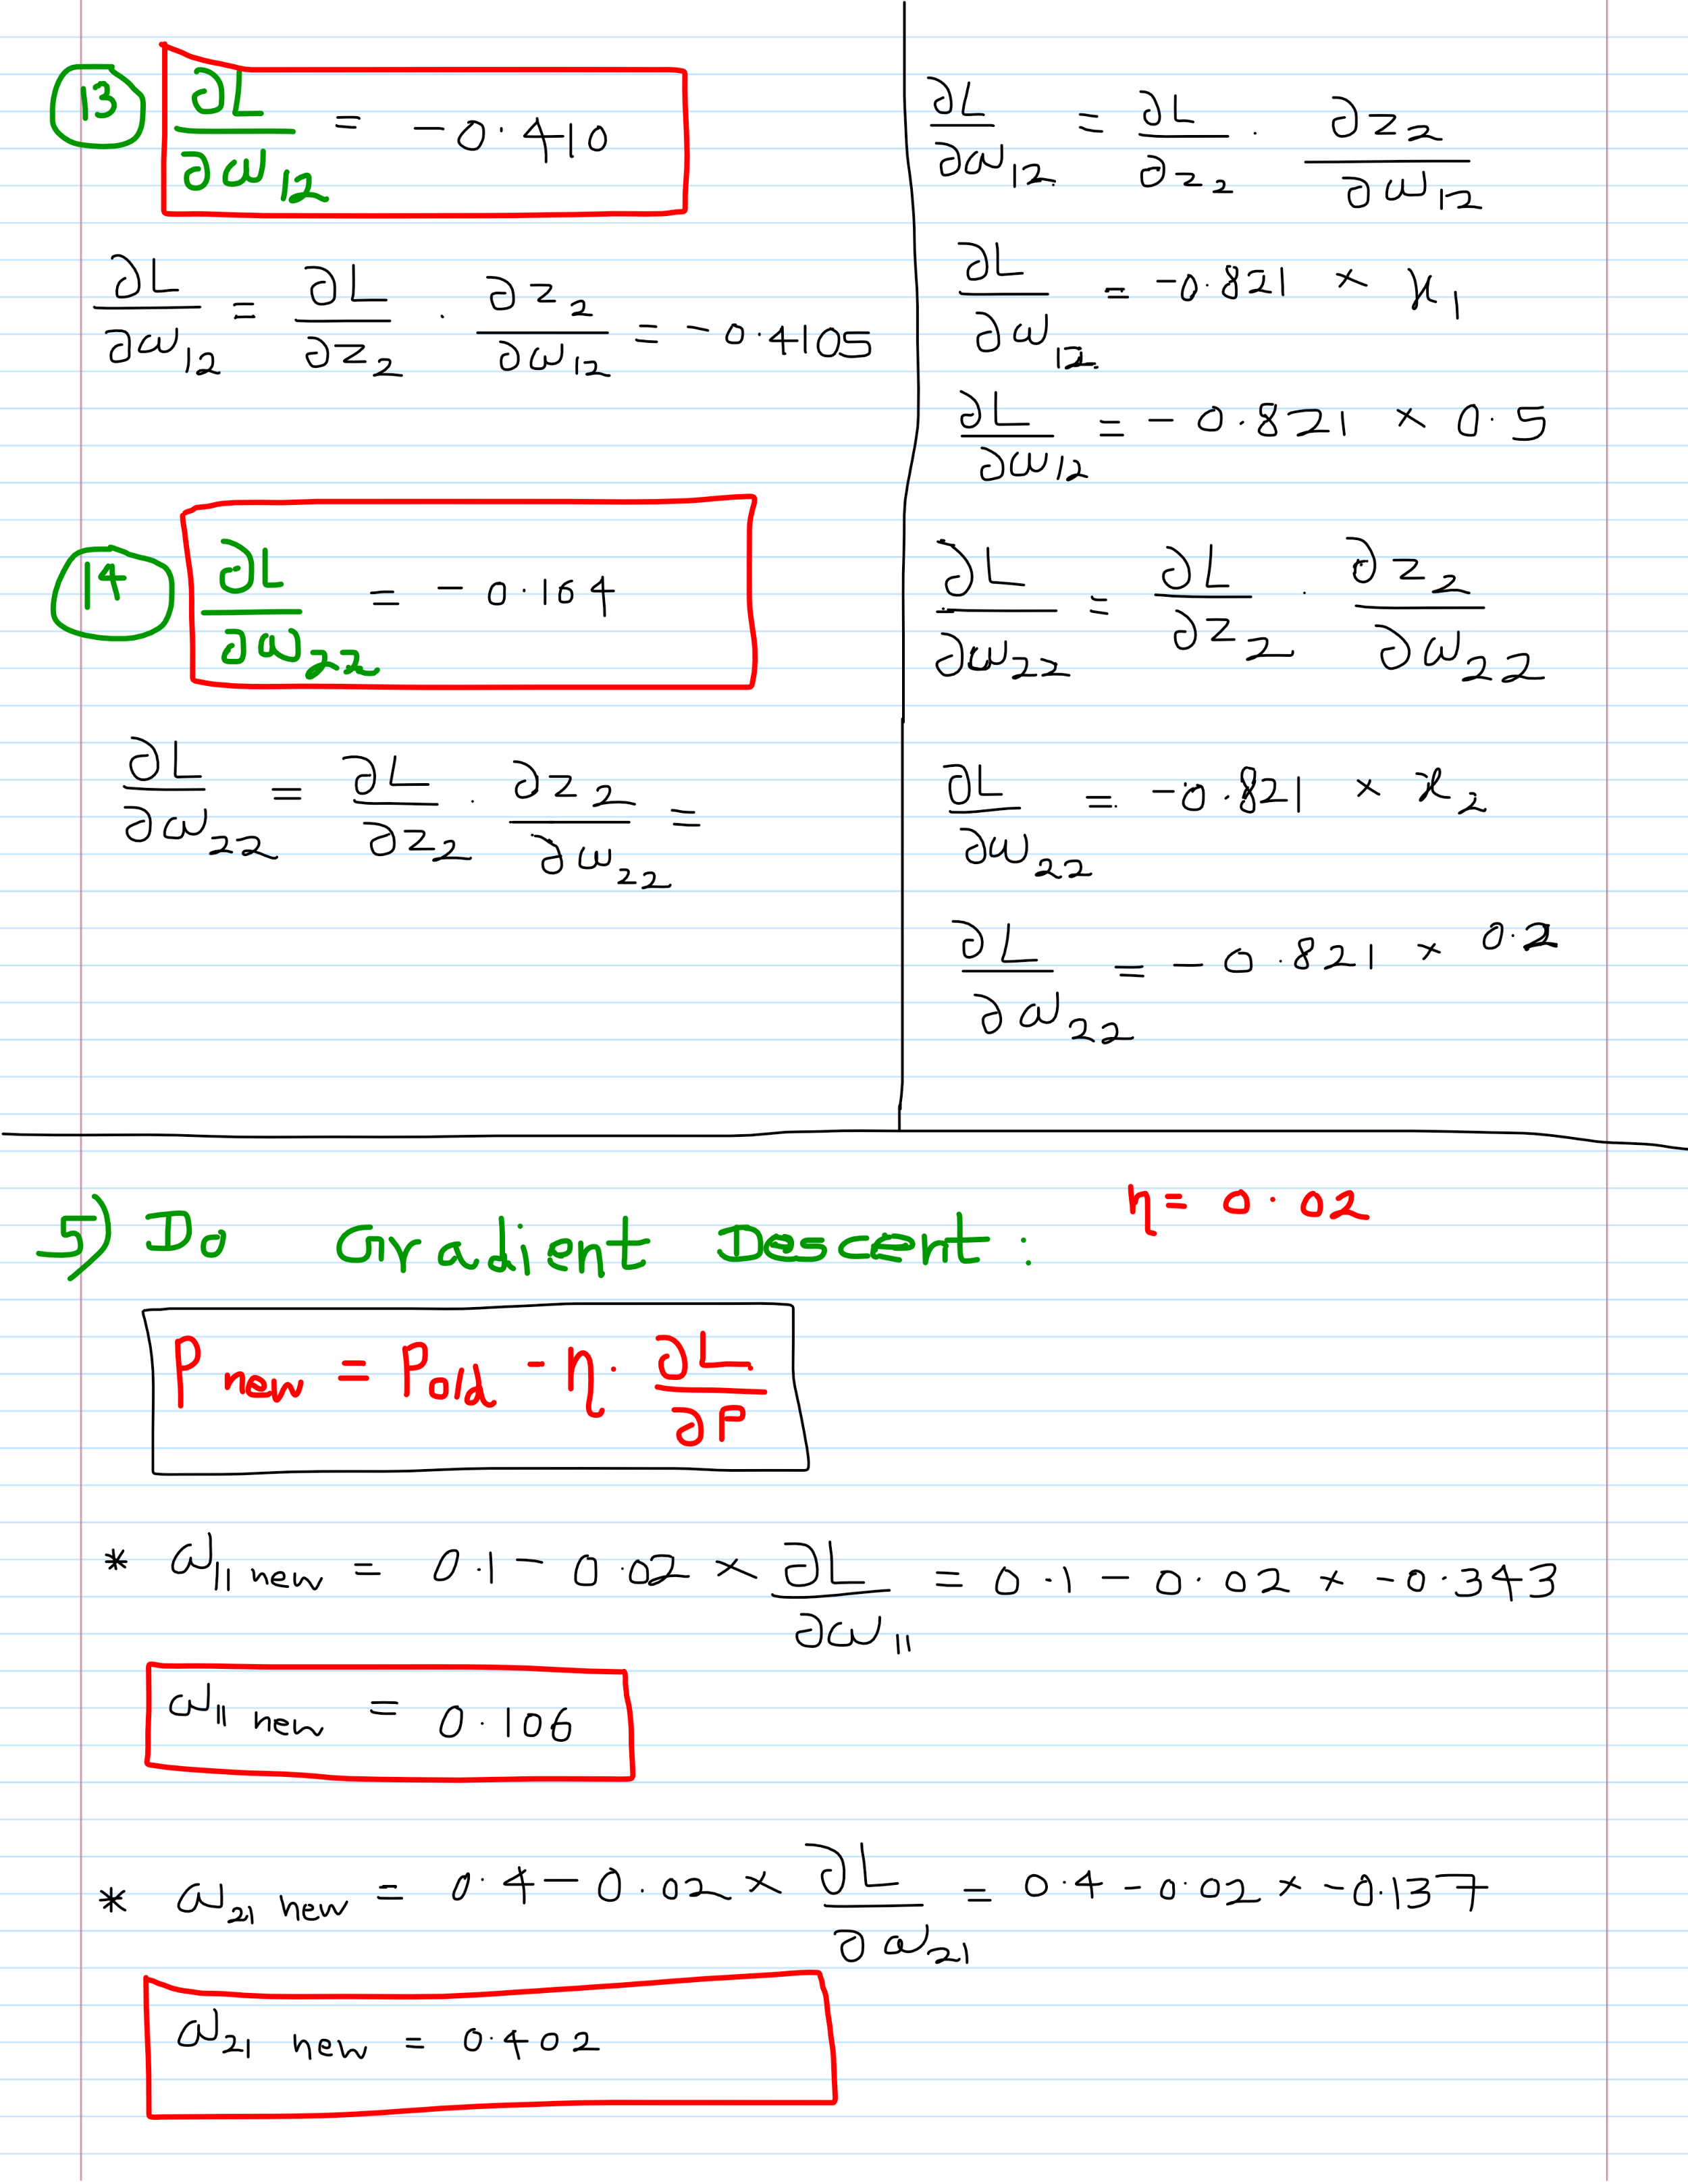 13
∂L/∂ω₁₂ = -0.410
∂L/∂ω₁₂ = ∂L/∂z₂ · ∂z₂/∂ω₁₂ = -0.4105
∂L/∂ω₁₂ = ∂L/∂z₂ · ∂z₂/∂ω₁₂
∂L/∂ω₁₂ = -0.821 × x₁
∂L/∂ω₁₂ = -0.821 × 0.5
14
∂L/∂ω₂₂ = -0.164
∂L/∂ω₂₂ = ∂L/∂z₂ · ∂z₂/∂ω₂₂ =
∂L/∂ω₂₂ = ∂L/∂z₂ · ∂z₂/∂ω₂₂
∂L/∂ω₂₂ = -0.821 × x₂
∂L/∂ω₂₂ = -0.821 × 0.2
5) Do Gradient Descent : η = 0.02
P new = P old - η · ∂L/∂P
* ω₁₁ new = 0.1 - 0.02 × ∂L/∂ω₁₁ = 0.1 - 0.02 × -0.343
ω₁₁ new = 0.106
* ω₂₁ new = 0.4 - 0.02 × ∂L/∂ω₂₁ = 0.4 - 0.02 × -0.137
ω₂₁ new = 0.402